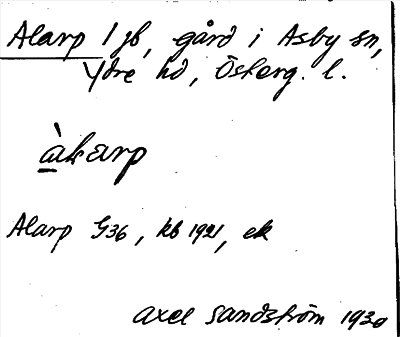 Alarp 1 jb, gård i Asby sn,
Ydre hd, Österg. l.
àlarp
Alarp G36, kb 1921, ek
Axel Sandström 1930